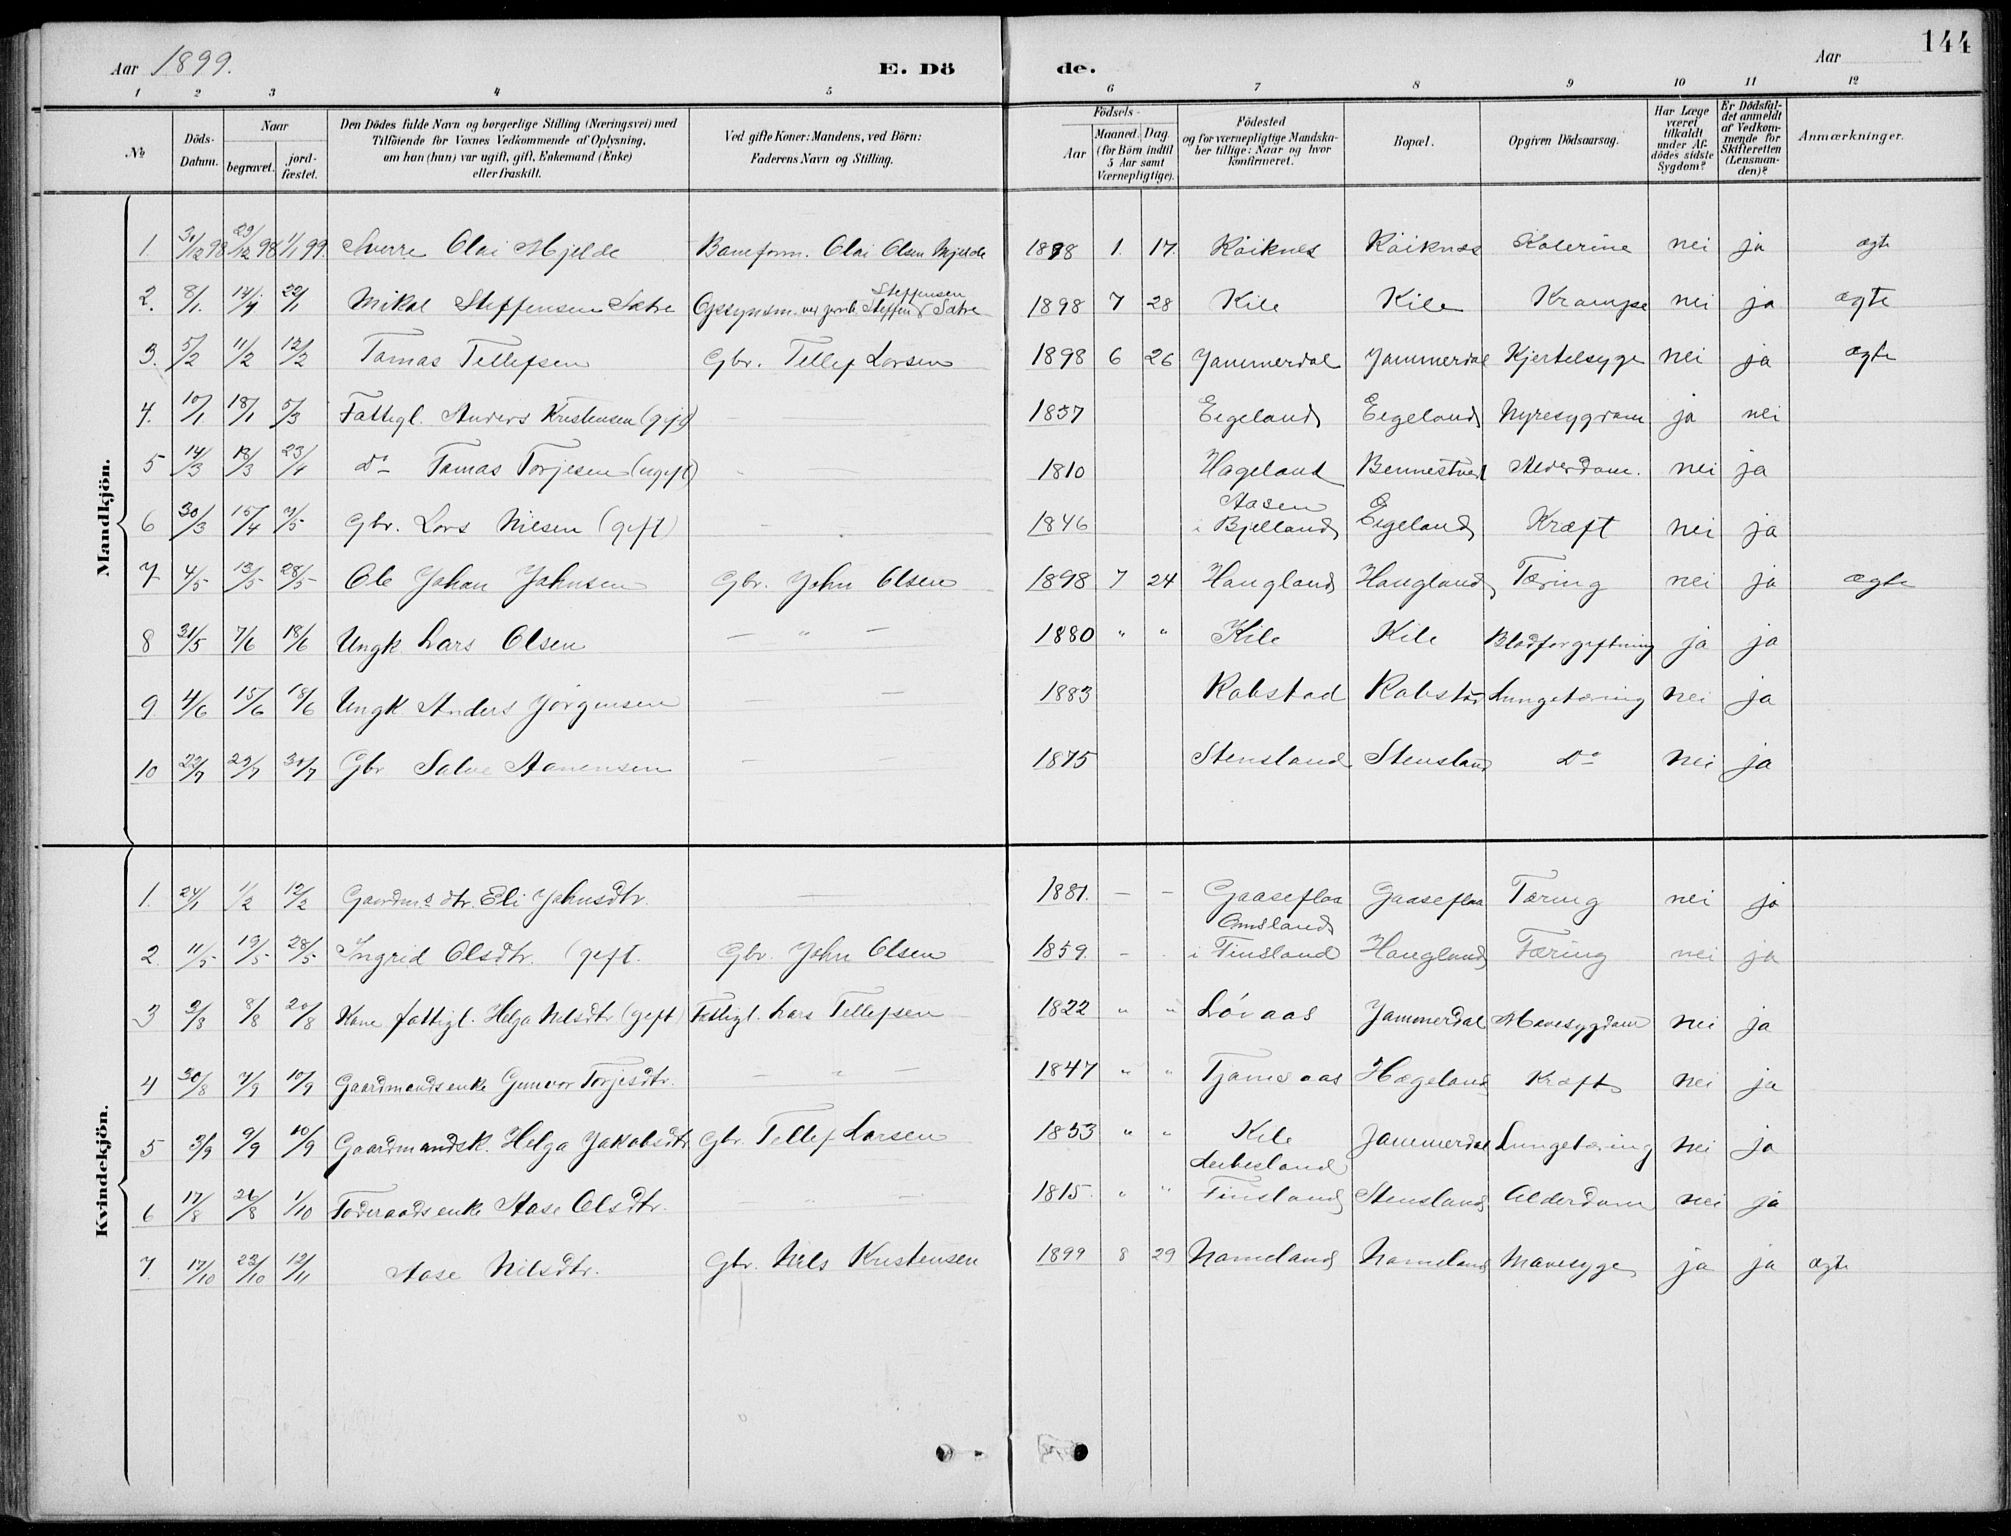 144
Aar 1899. E. Dö de. Aar
1 2 3 4 5 6 7 8 9 10 11 12
No
Döds-Datum.
Naar
begravet.
jord-fæstet.
Den Dödes fulde Navn og borgerlige Stilling (Næringsvei) med
Tilföiende for Voxnes Vedkommende af Oplysning,
om han (hun) var ugift, gift, Enkemand (Enke)
eller fraskilt.
Ved gifte Koner: Mandens, ved Börn:
Faderens Navn og Stilling.
Födsels-
Aar
Maaned. Dag.
(for Börn indtil
5 Aar samt
Værnepligtige).
Födested
og for værnepligtige Mandska-
ber tillige: Naar og hvor
konfirmeret.
Bopæl.
Opgiven Dödsaarsag.
Har Læge
været
tilkaldt
under Af-
dödes sidste
Sygdom?
Er Dödsfal-
det anmeldt
af Vedkom-
mende for
Skifteretten
(Lensman-
den)?
Anmærkninger.
Mandkjön.
1. 31/12 98 29/12 98 1/1 99. Sverre Olai Mjelde Banform. Olai Olsen Mjelde 1898 1. 17. Röiknes Röiknes Kolerine nei ja ægte
2. 8/1. 14/1. 22/1 Mikal Steffensen Sætre Opsynsm. ved Steffen Steffensen Sætre 1898 7 28 Kile Kile Krampe nei ja ægte
3. 5/2 11/2 12/2 Tomas Tellefsen Gbr. Tellef Larsen 1898 6 26 Jammerdal Jammerdal Kjertelsyge nei ja ægte
4. 10/1 18/1 5/3 Fattigl. Anders Kristensen (gift) - 1837 Eigeland Eigeland Nyresygdom ja nei
5 14/3 18/3 23/4 do Tomas Torjesen (ugift) - 1810 Hageland Bennestvedt Alderdom. nei ja
6 30/3 15/4 7/5 Gbr. Lars Nilsen (gift) - 1846 Aasen i Bjelland Eigeland Kræft nei ja
7 4/5 13/5 28/5 Ole Johan Johnsen Gbr. John Olsen 1898 7 24 Haugland Haugland Tæring nei ja ægte
8 31/5 7/6 18/6 Ungk Lars Olsen — " — 1880 " " Kile Kile Blodforgiftning ja ja
9 4/6 15/6 18/6 Ungk Anders Jörgensen — — 1883 Robstad Robstad Lungetæring nei ja
10 22/7 29/7 30/7 Gbr Salve Aanensen — — 1875 Stensland Stensland Do nei ja
Kvindekjön.
1. 24/1 1/2 12/2 Gaardms dtr. Eli Johnsdtr. — — 1881. — — Gaaseflaa Gaaseflaa Tæring nei ja
2 11/5 19/5 28/5 Ingrid Olsdtr. (gift. Gbr. John Olsen 1859. - . Omsland i Finsland Haugland Tæring nei ja
3 2/8 8/8 20/8 Kone fattigl. Helga Nilsdtr (gift) Fattigl. Lars Tellefsen 1822 " " Lövaas Jammerdal Mavesygdom nei ja
4 30/8 7/9 10/9 Gaardmandsenke Gunvor Torjesdtr. — " — 1847 " " Tjomsaas Hægeland Kræft nei ja
5 3/9 9/9 10/9 Gaardmandsk. Helga Jakobsdtr Gbr. Tellef Larsen 1853 " " Kile Jammerdal Lungetæring nei ja
6 17/8 26/8 1/10 Föderaadsenke Aase Olsdtr. — " — 1815. " " Leibesland Finsland Stensland Alderdom nei ja
7. 17/10 23/10 12/11 Aase Nilsdtr. Gbr. Nils Kristensen 1899 8 29 Nomeland Nomeland Mavesyge ja ja ægte